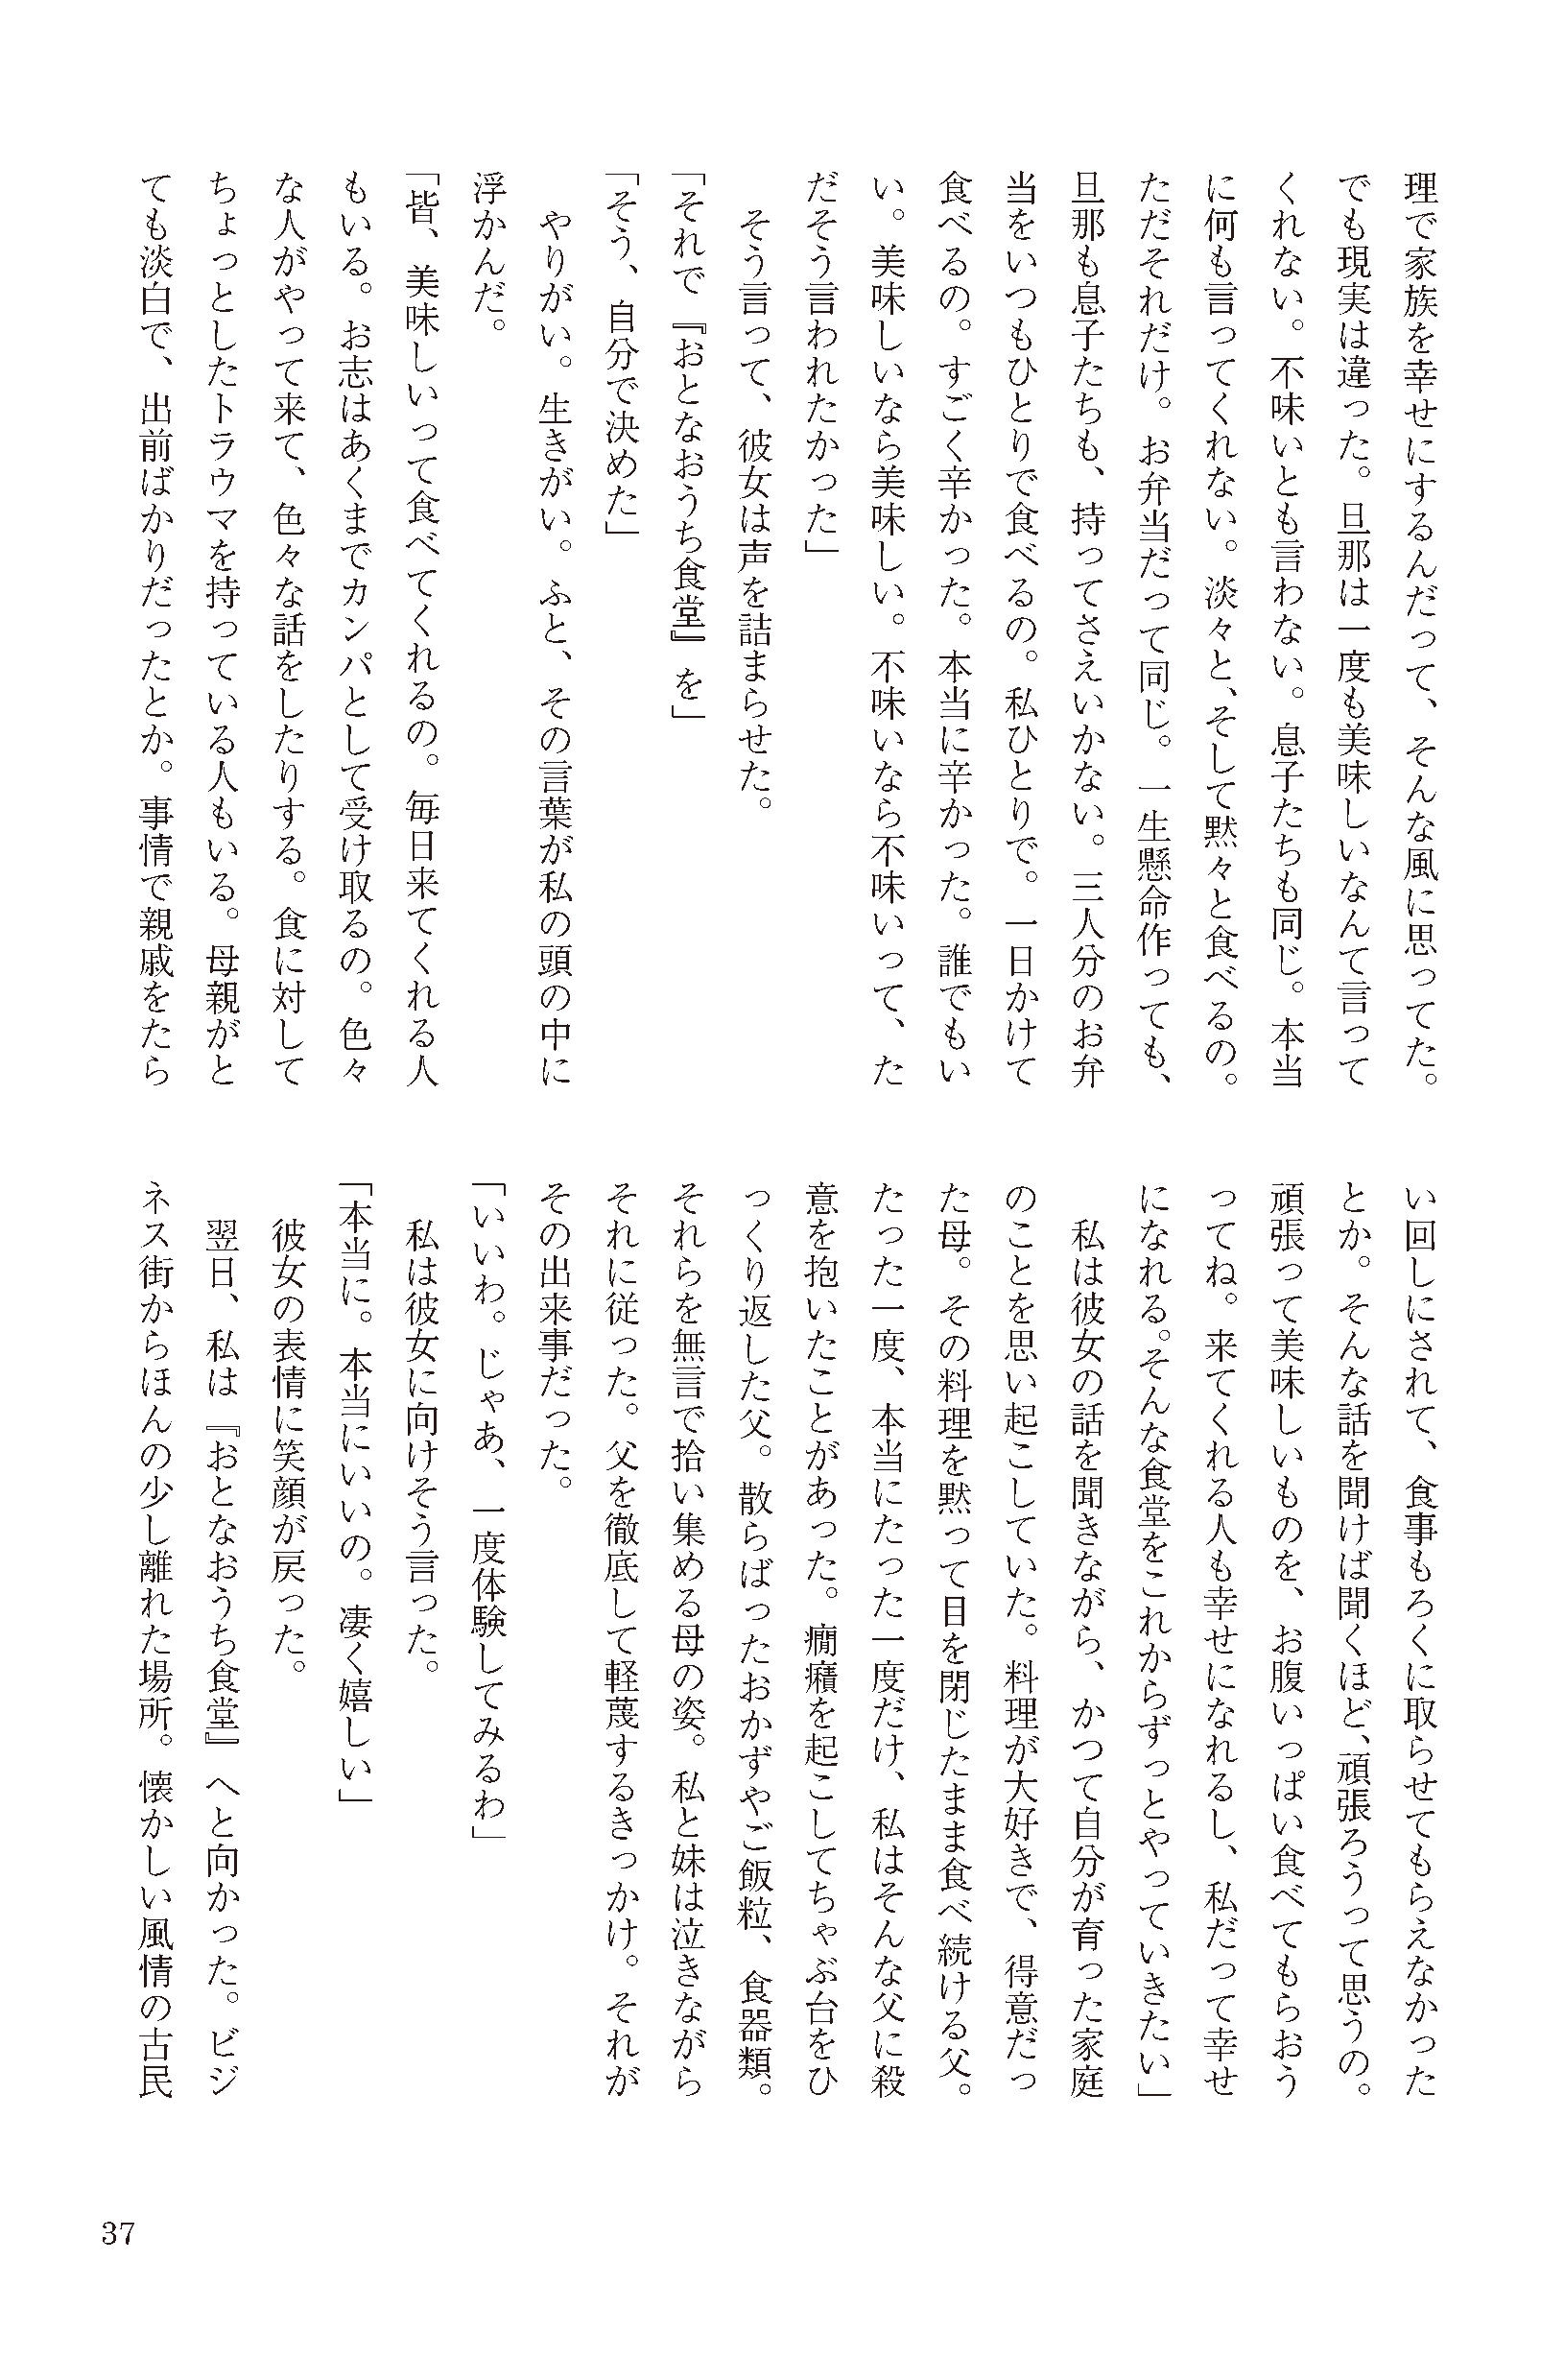 理で家族を幸せにするんだって、そんな風に思ってた。
でも現実は違った。旦那は一度も美味しいなんて言って
くれない。不味いとも言わない。息子たちも同じ。本当
に何も言ってくれない。淡々と、そして黙々と食べるの。
ただそれだけ。お弁当だって同じ。一生懸命作っても、
旦那も息子たちも、持ってさえいかない。三人分のお弁
当をいつもひとりで食べるの。私ひとりで。一日かけて
食べるの。すごく辛かった。本当に辛かった。誰でもい
い。美味しいなら美味しい。不味いなら不味いって、た
だそう言われたかった」
そう言って、彼女は声を詰まらせた。
「それで『おとなおうち食堂』を」
「そう、自分で決めた」
やりがい。生きがい。ふと、その言葉が私の頭の中に
浮かんだ。
「皆、美味しいって食べてくれるの。毎日来てくれる人
もいる。お志はあくまでカンパとして受け取るの。色々
な人がやって来て、色々な話をしたりする。食に対して
ちょっとしたトラウマを持っている人もいる。母親がと
ても淡白で、出前ばかりだったとか。事情で親戚をたら
い回しにされて、食事もろくに取らせてもらえなかった
とか。そんな話を聞けば聞くほど、頑張ろうって思うの。
頑張って美味しいものを、お腹いっぱい食べてもらおう
ってね。来てくれる人も幸せになれるし、私だって幸せ
になれる。そんな食堂をこれからずっとやっていきたい」
私は彼女の話を聞きながら、かつて自分が育った家庭
のことを思い起こしていた。料理が大好きで、得意だっ
た母。その料理を黙って目を閉じたまま食べ続ける父。
たった一度、本当にたった一度だけ、私はそんな父に殺
意を抱いたことがあった。癇癪を起こしてちゃぶ台をひ
っくり返した父。散らばったおかずやご飯粒、食器類。
それらを無言で拾い集める母の姿。私と妹は泣きながら
それに従った。父を徹底して軽蔑するきっかけ。それが
その出来事だった。
「いいわ。じゃあ、一度体験してみるわ」
私は彼女に向けそう言った。
「本当に。本当にいいの。凄く嬉しい」
彼女の表情に笑顔が戻った。
翌日、私は『おとなおうち食堂』へと向かった。ビジ
ネス街からほんの少し離れた場所。懐かしい風情の古民
37